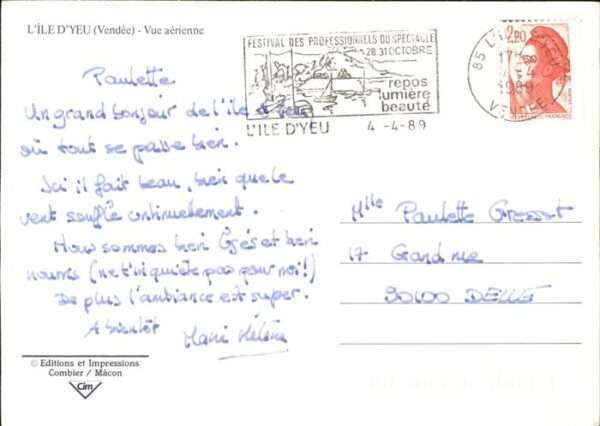 L'ÎLE D'YEU (Vendée) - Vue aérienne
FESTIVAL DES PROFESSIONNELS DU SPECTACLE
28.31 OCTOBRE
repos
lumière
beauté
L'ILE D'YEU 4 -4-89
85 L'ILE D'YEU
17H
4-4
1989
VENDÉE
2,20
Paulette
Un grand bonjour de l'île d'Yeu
où tout se passe bien.
Ici il fait beau, bien que le
vent souffle continuellement.
Nous sommes bien logés et bien
nourris (ne t'inquiète pas pour moi!)
De plus l'ambiance est super.
A bientôt Marie Hélène
Mlle Paulette
17 Grand rue
90100 DELLE
© Editions et Impressions
Combier / Mâcon
Cim